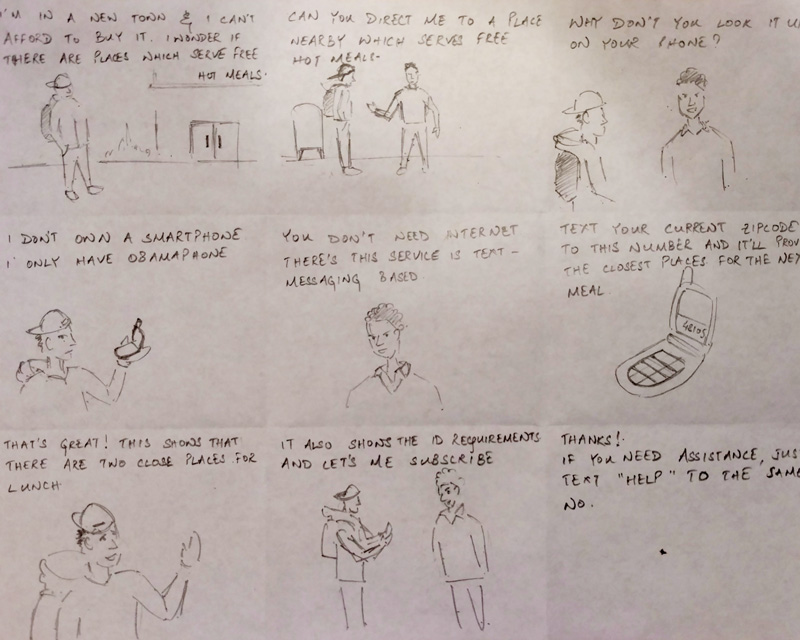 I'M IN A NEW TOWN & I CAN'T
AFFORD TO BUY IT. I WONDER IF
THERE ARE PLACES WHICH SERVE FREE
HOT MEALS.
CAN YOU DIRECT ME TO A PLACE
NEARBY WHICH SERVES FREE
HOT MEALS.
WHY DON'T YOU LOOK IT U
ON YOUR PHONE?
I DON'T OWN A SMARTPHONE
I ONLY HAVE OBAMAPHONE
YOU DON'T NEED INTERNET
THERE'S THIS SERVICE IS TEXT-
MESSAGING BASED.
TEXT YOUR CURRENT ZIPCODE
TO THIS NUMBER AND IT'LL PROV
THE CLOSEST PLACES FOR THE NEX
MEAL.
48105
THAT'S GREAT! THIS SHOWS THAT
THERE ARE TWO CLOSE PLACES FOR
LUNCH.
IT ALSO SHOWS THE ID REQUIREMENTS
AND LET'S ME SUBSCRIBE
THANKS!
IF YOU NEED ASSISTANCE, JUS
TEXT "HELP" TO THE SAME
NO.